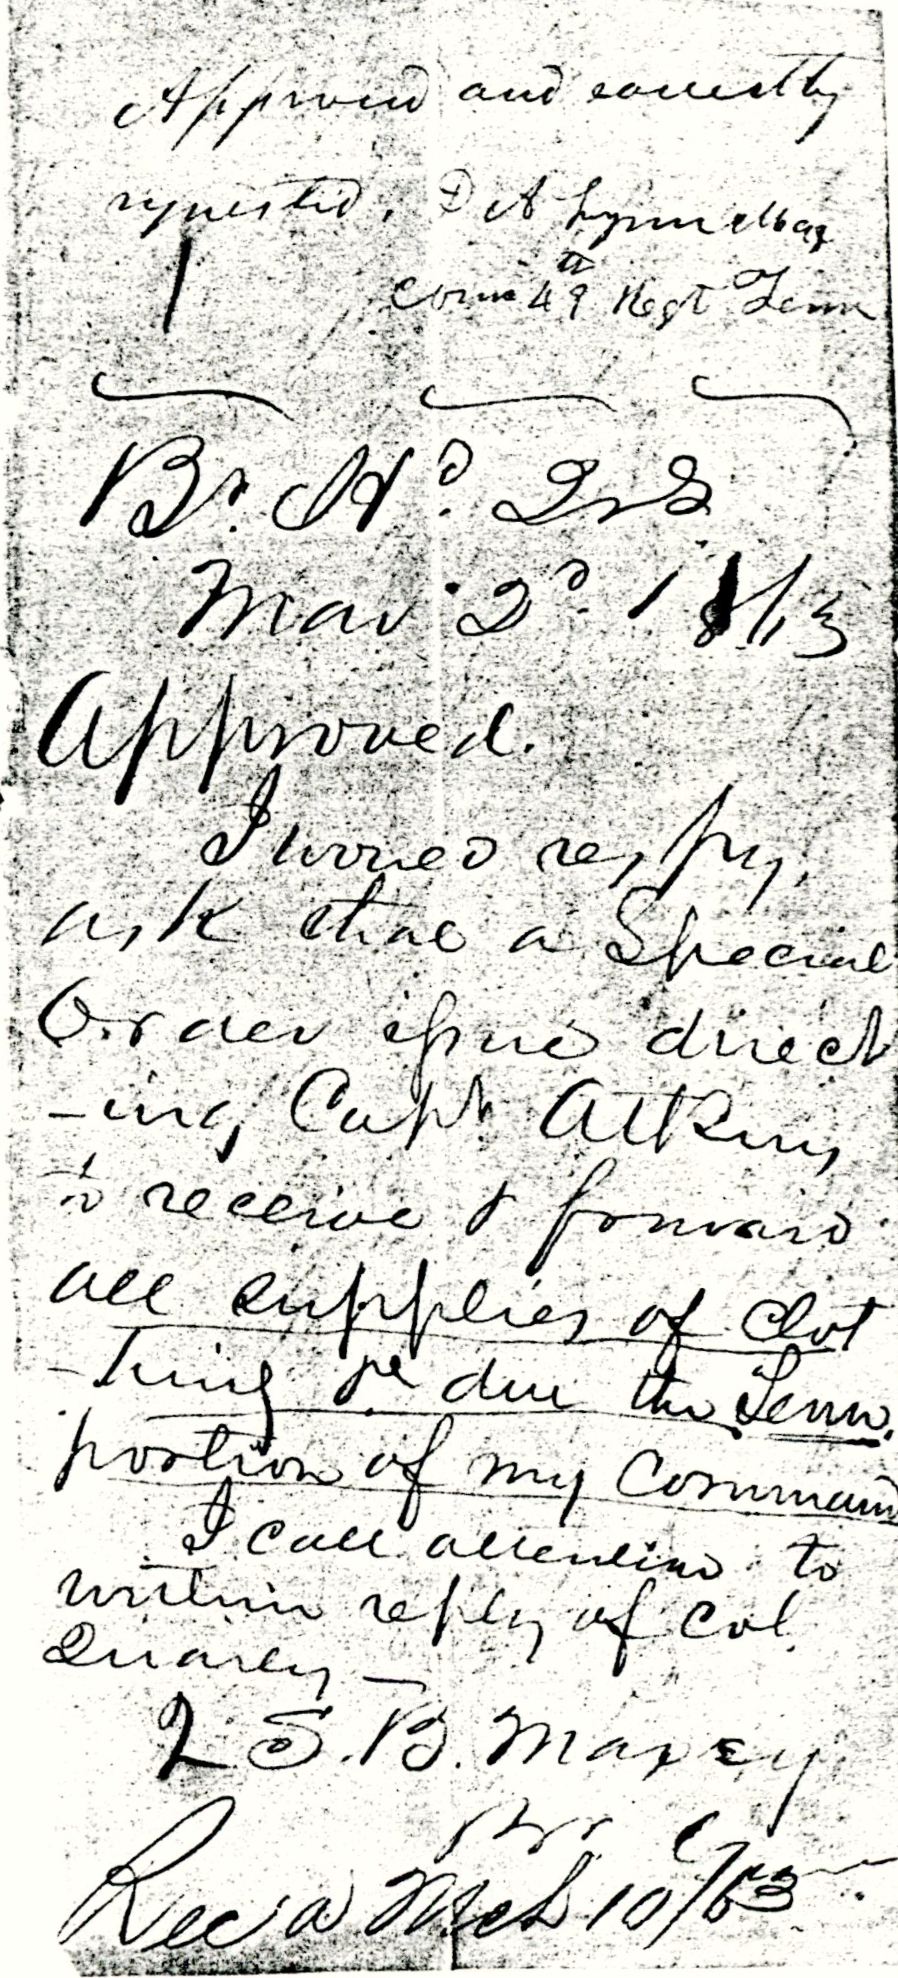 Approved and earnestly
requested. D A Lynn Maj
Com 49th Regt Tenn
Br. Hd. Qrs
Mar 2d 1863
Approved.
I would respy,
ask that a Special
Order issue direct
-ing Capt. Atkins
to receive & forward
all supplies of clot
-hing &c due the Tenn.
portion of my Command
I call attention to
within reply of Col.
Quarles —
S. B. Maxey
Brig
Recd Mch 10/63